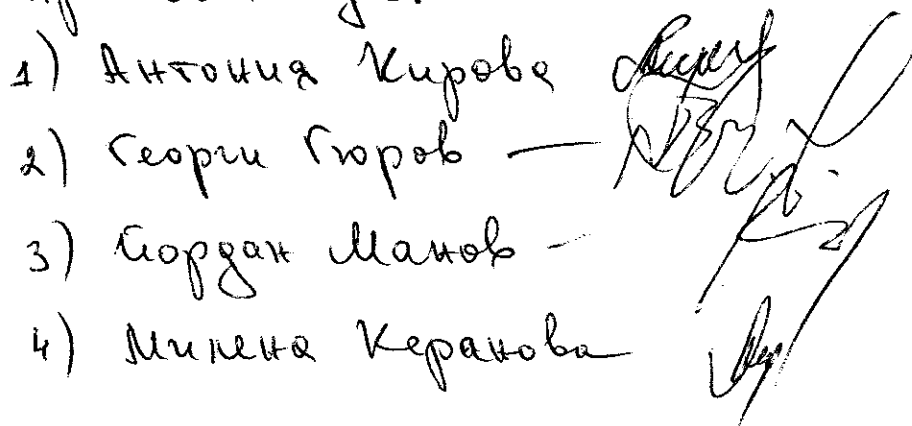 1) Антония Кирова
2) Георги Гюров —
3) Йордан Манов -
4) Милена Керанова